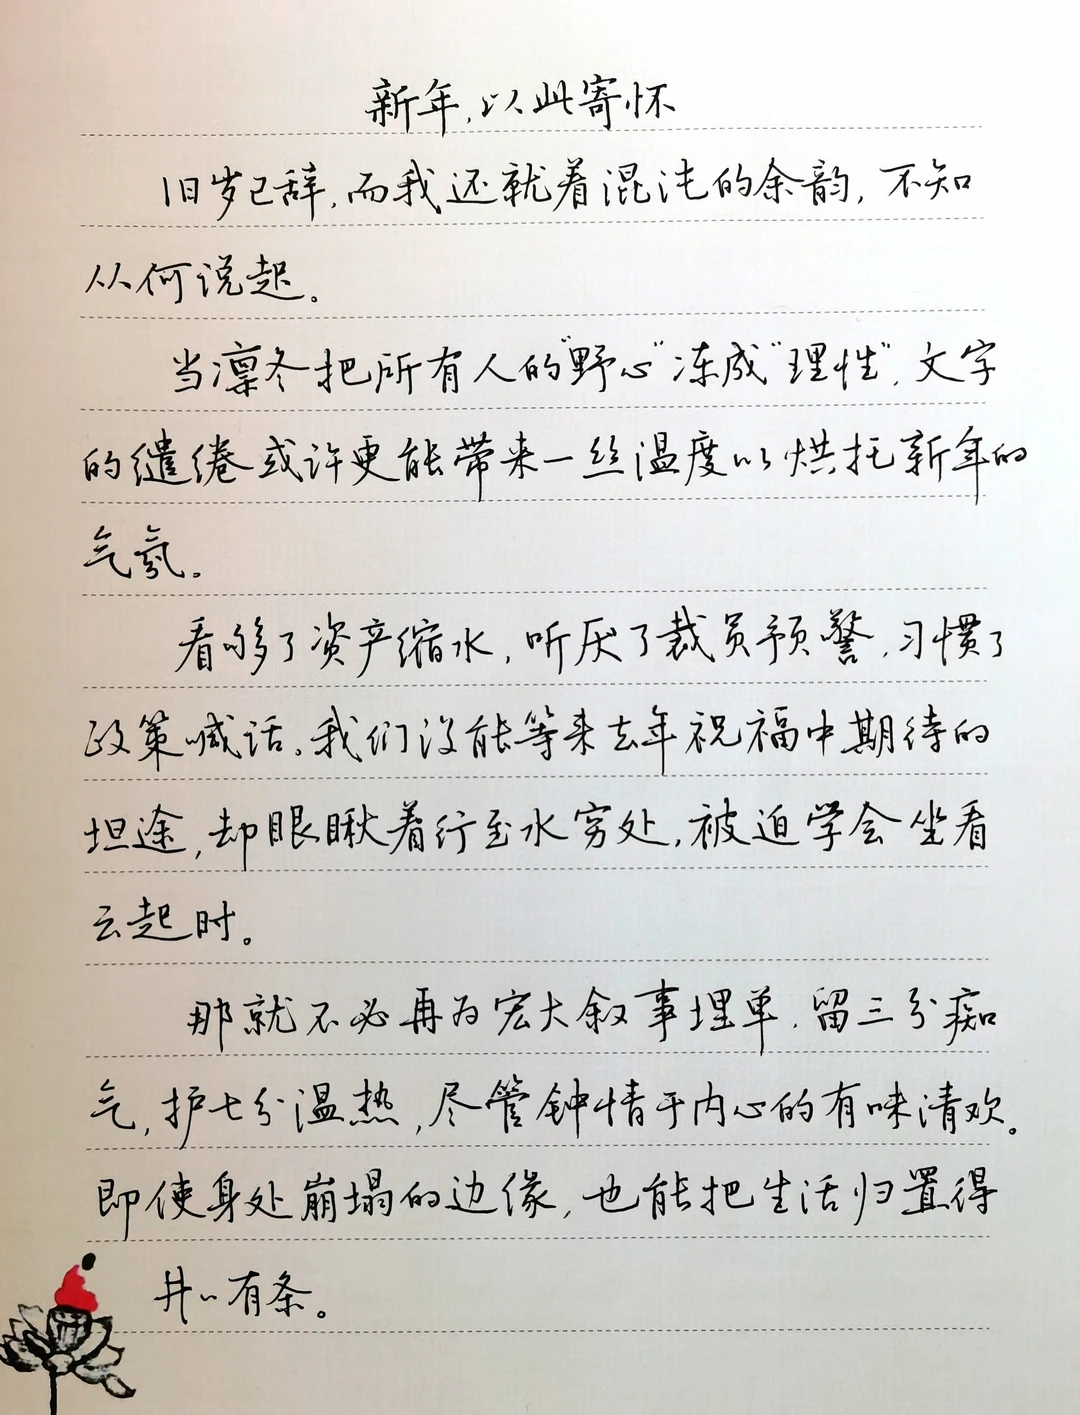 新年，以此寄怀
旧岁已辞，而我还就着混沌的余韵，不知
从何说起。
当凛冬把所有人的"野心"冻成"理性"，文字
的缱绻或许更能带来一丝温度以烘托新年的
气氛。
看够了资产缩水，听厌了裁员预警，习惯了
政策喊话。我们没能等来去年祝福中期待的
坦途，却眼瞅着行至水穷处，被迫学会坐看
云起时。
那就不必再为宏大叙事埋单，留三分痴
气，护七分温热，尽管钟情于内心的有味清欢。
即使身处崩塌的边缘，也能把生活归置得
井〃有条。